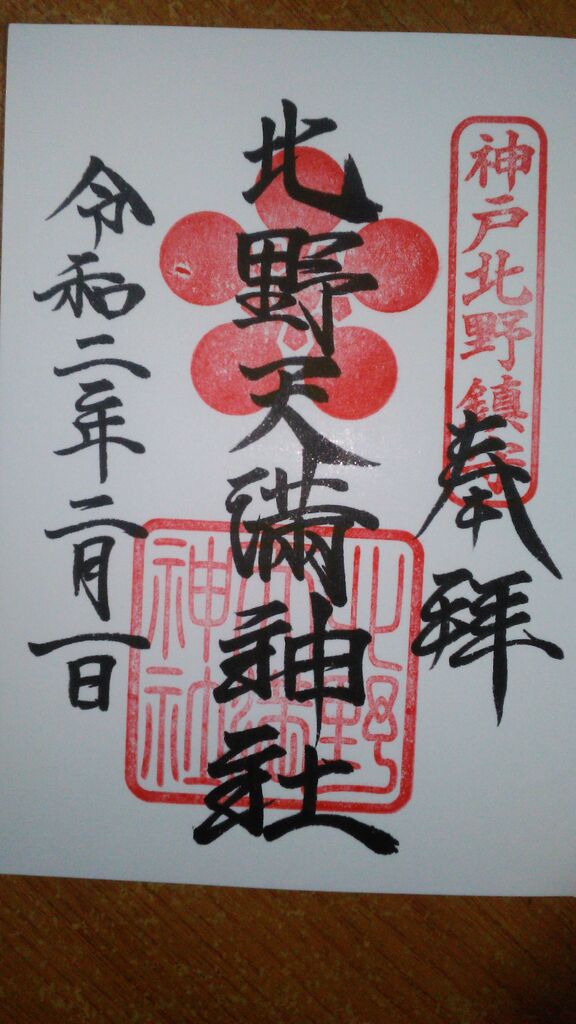 神戸北野鎮守
奉拝
北野天満神社
北野天満神社
令和二年二月一日